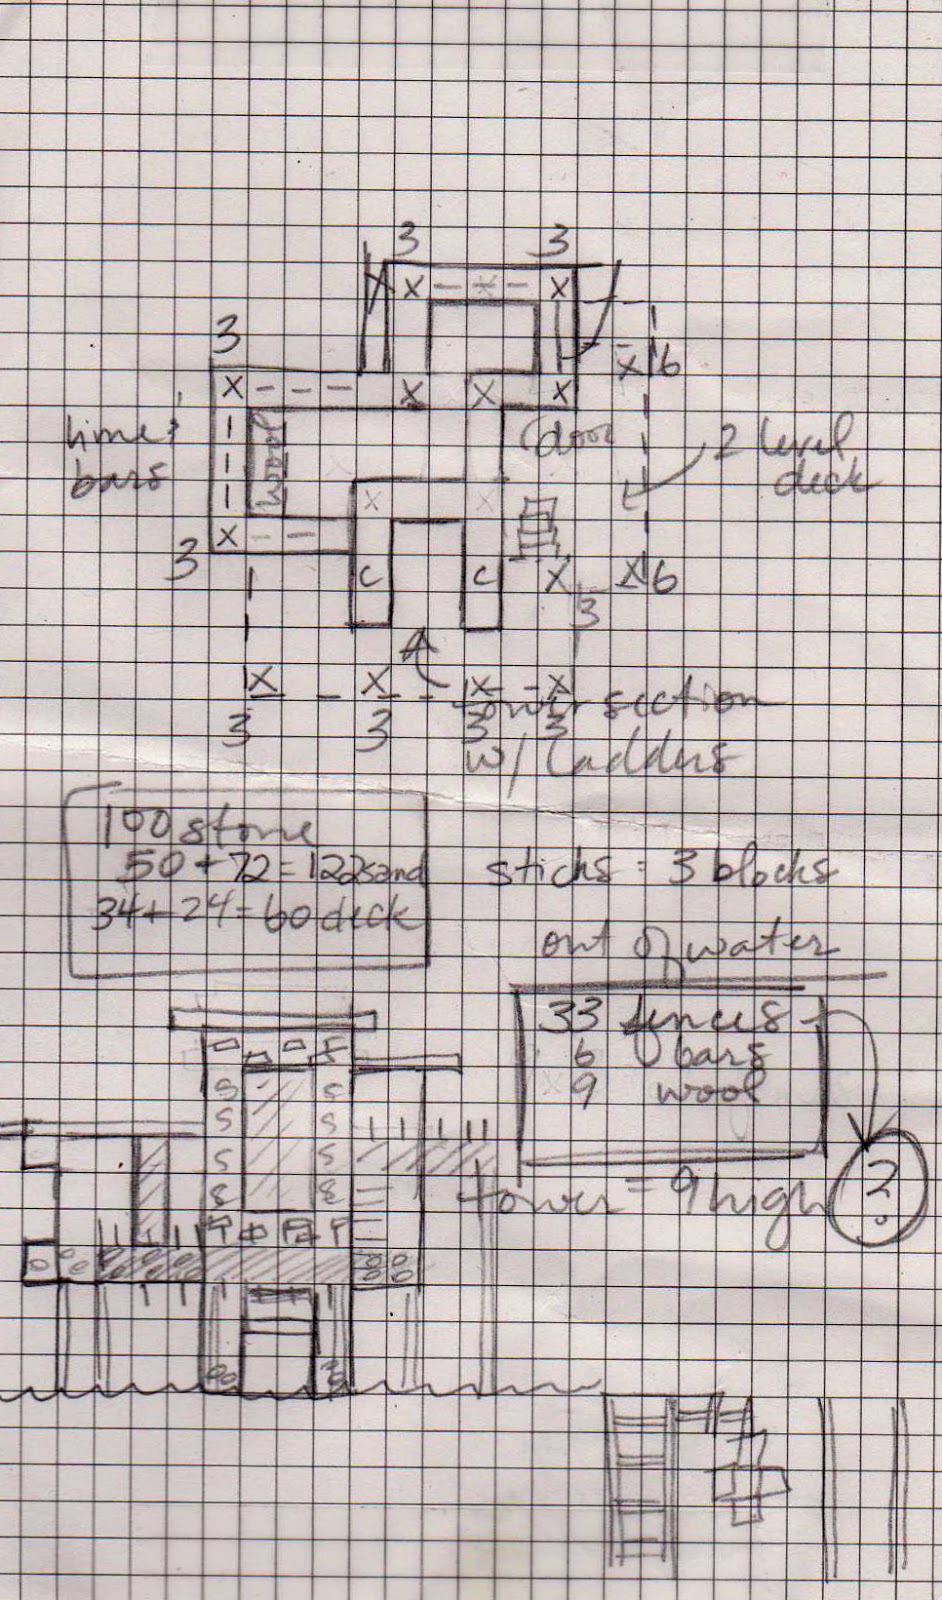 3 3
X X
3
X 6
X X X X
lime &
bars
wool
door
2 level
deck
X X
X
3
C C
X X 6
3
X X X X
3 3 3 3
tower section
w/ ladders
100 stone
50 + 72 = 122 sand
34 + 24 = 60 deck
sticks = 3 blocks
out of water
33 fences
6 bars
9 wool
tower = 9 high
?
S S
S S
S S
S S